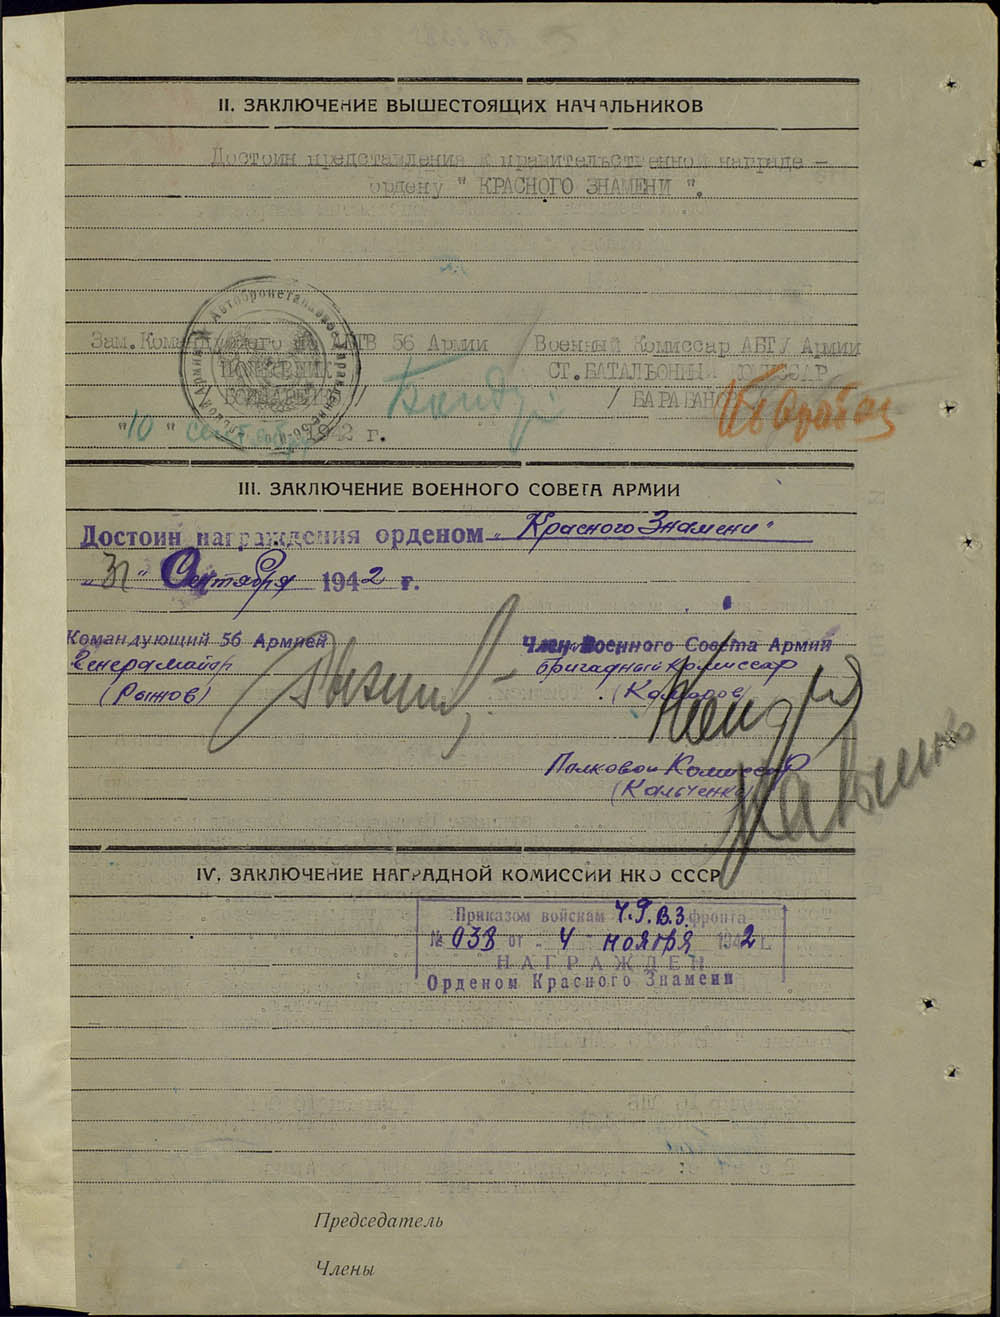 II. ЗАКЛЮЧЕНИЕ ВЫШЕСТОЯЩИХ НАЧАЛЬНИКОВ
Достоин представления к правительственной награде –
ордену " КРАСНОГО ЗНАМЕНИ ".
Зам. Командующего по АБТВ 56 Армии
ПОЛКОВНИК
Военный Комиссар АБТУ Армии
СТ. БАТАЛЬОННЫЙ КОМИССАР
/ БАРАБАНО
"10" сентября 1942 г.
III. ЗАКЛЮЧЕНИЕ ВОЕННОГО СОВЕТА АРМИИ
Достоин награждения орденом „Красного Знамени"
Сентября 1942 г.
Командующий 56 Армией
Генерал майор
(Рыжов)
Член Военного Совета Армии
бригадный комиссар
(Комаров)
Полковой Комиссар
(Кальченко)
IV. ЗАКЛЮЧЕНИЕ НАГРАДНОЙ КОМИССИИ НКО СССР
Приказом войскам Ч.Г.В.З. фронта
№ 038 от „4 ноября 1942 г.
НАГРАЖДЕН
Орденом Красного Знамени
Председатель
Члены